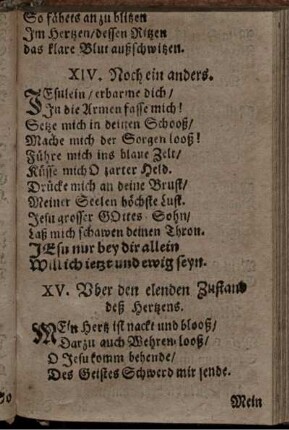 So fähets an zu blitzen
Im Hertzen/dessen Ritzen
das klare Blut außschwitzen.
XIV. Noch ein anders.
JEsulein/ erbarme dich/
In die Armen fasse mich!
Setze mich in deinen Schooß/
Mache mich der Sorgen looß!
Führe mich ins blaue Zelt/
Küsse mich O zarter Held.
Drücke mich an deine Brust/
Meiner Seelen höchste Lust.
Jesu grosser GOttes Sohn/
Laß mich schawen deinen Thron.
JEsu nur bey dir allein
Will ich ietzt und ewig seyn.
XV. Vber den elenden Zustand
deß Hertzens.
MEin Hertz ist nackt und blooß/
Darzu auch Wehren looß/
O Jesu komm behende/
Des Geistes Schwerd mir sende.
Mein